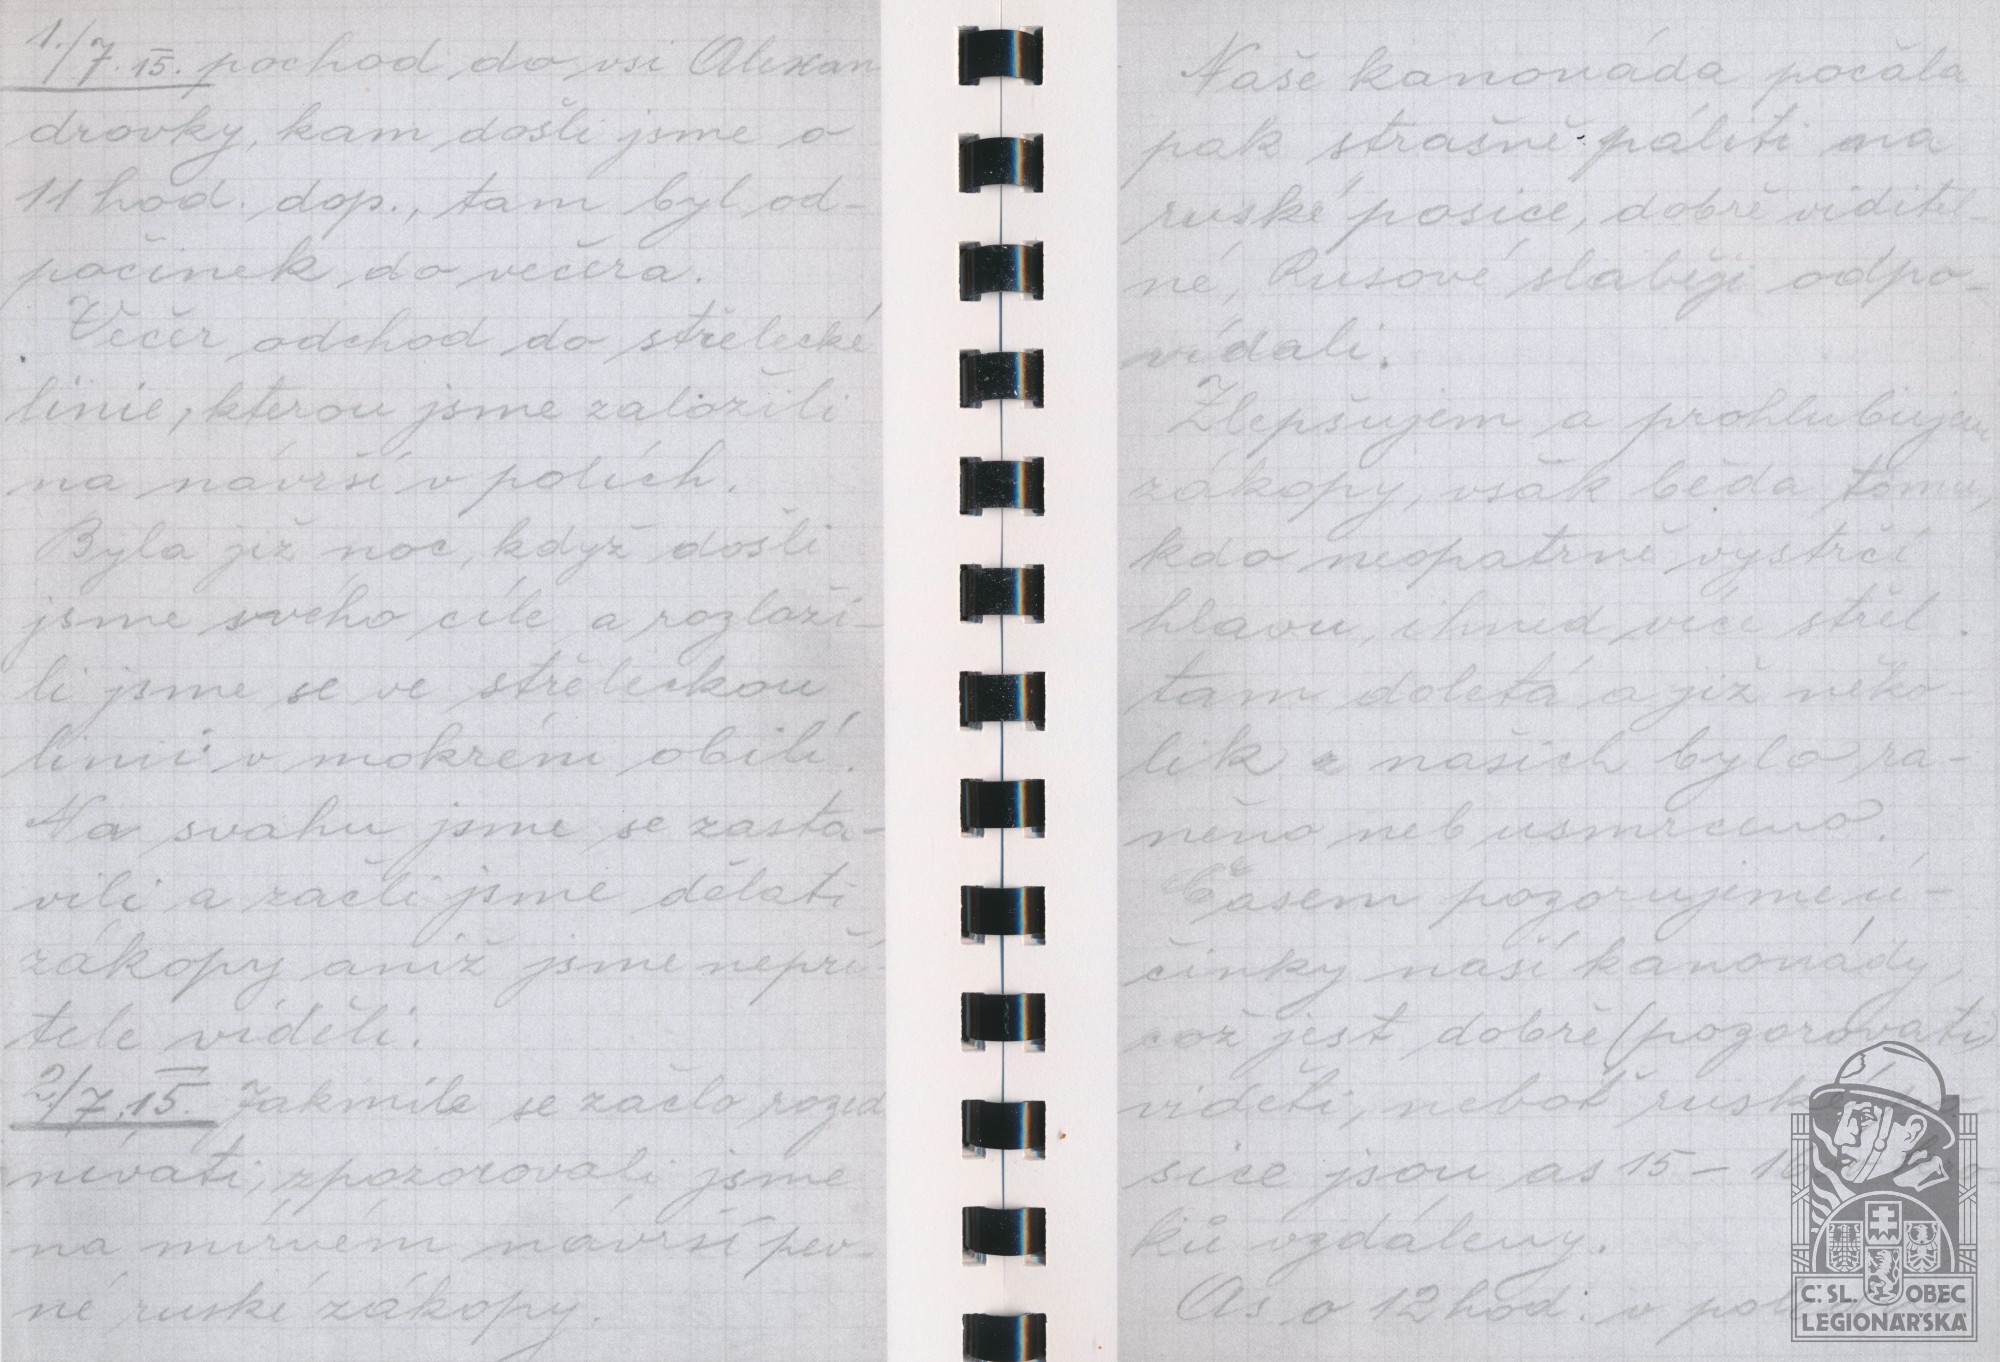 1./7. 15. pochod do vsi Alexan
drovky, kam došli jsme o
11 hod. dop., tam byl od-
počinek do večera.
Večer odchod do střelecké
linie, kterou jsme založili
na návrší v polích.
Byla již noc, když došli
jsme svého cíle a rozloži-
li jsme se ve střeleckou
linii v mokrém obilí.
Na svahu jsme se zasta-
vili a začli jsme dělati
zákopy aniž jsme nepří-
tele viděli.
2/7. 15. Jakmile se začlo rozed
nívati, zpozorovali jsme
na mírném návrší pev-
né ruské zákopy.
Naše kanonáda počala
pak strašně páliti na
ruské posice, dobře viditel-
né, Rusové slaběji odpo-
vídali.
Zlepšujem a prohlubujem
zákopy, však běda tomu,
kdo neopatrně vystrčí
hlavu, ihned více střel
tam doletá a již něko-
lik z našich bylo ra-
něno neb usmrceno.
Časem pozorujeme ú-
činky naší kanonády,
což jest dobře (pozorovati)
viděti, neboť ruské
sice jsou as 15 –
ků vzdáleny.
As o 12 hod. v
Č. SL. OBEC
LEGIONÁŘSKÁ